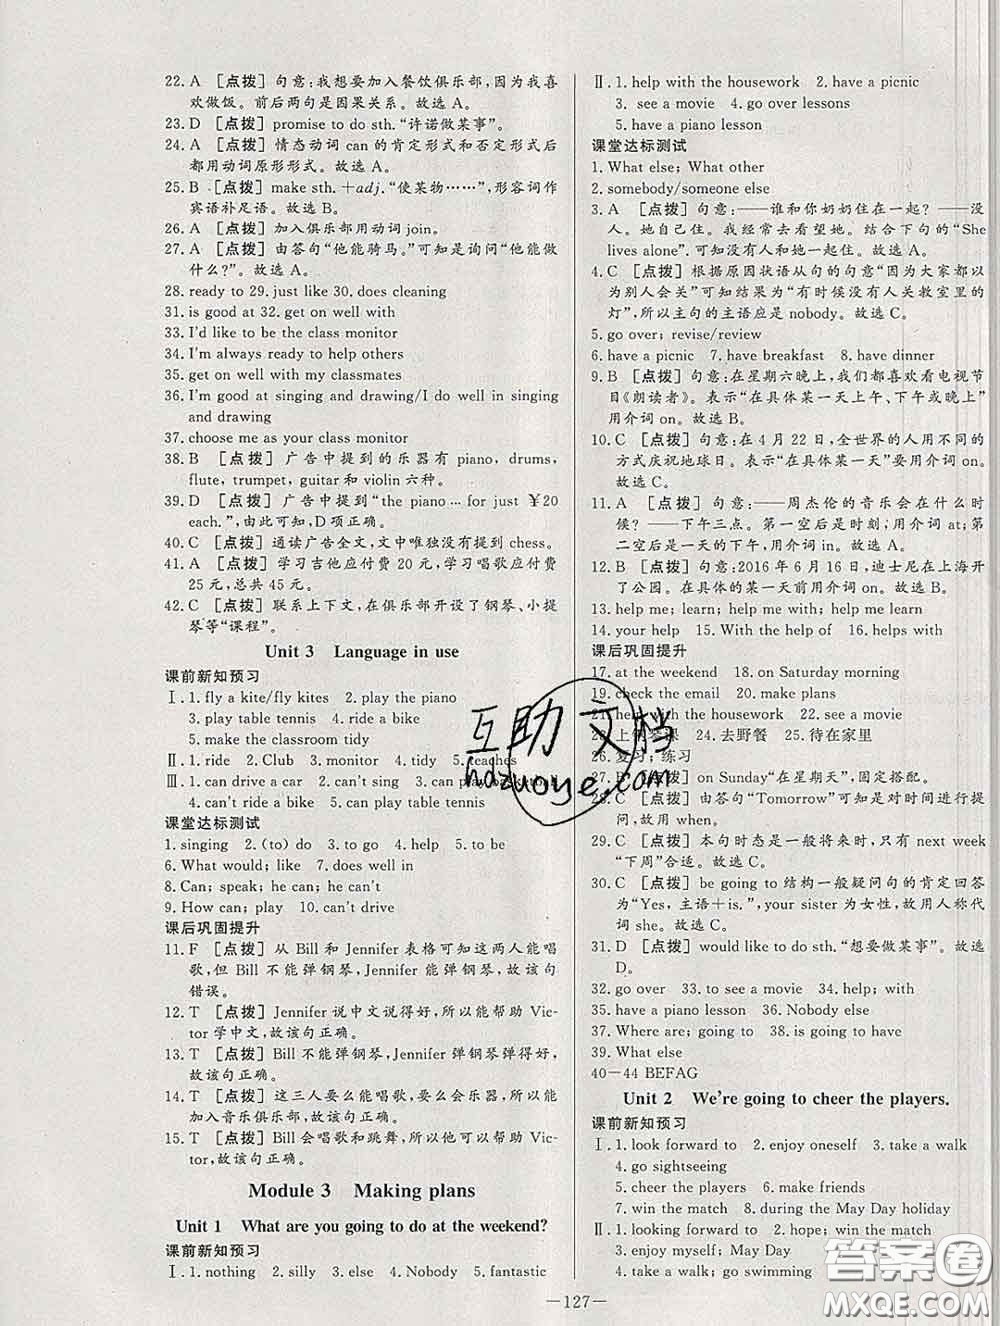 22. A [点拨] 句意:我想要加入餐饮俱乐部,因为我喜
欢做饭。前后两句是因果关系。故选 A。
23. D [点拨] promise to do sth.“许诺做某事”。
24. A [点拨] 情态动词 can 的肯定形式和否定形式后
都用动词原形形式。故选 A。
25. B [点拨] make sth. +adj.“使某物……”,形容词作
宾语补足语。故选 B。
26. A [点拨] 加入俱乐部用动词 join。
27. A [点拨] 由答句“他能骑马。”可知是询问“他能做
什么?”。故选 A。
28. ready to 29. just like 30. does cleaning
31. is good at 32. get on well with
33. I'd like to be the class monitor
34. I'm always ready to help others
35. get on well with my classmates
36. I'm good at singing and drawing/I do well in singing
and drawing
37. choose me as your class monitor
38. B [点拨] 广告中提到的乐器有 piano, drums,
flute, trumpet, guitar 和 violin 六种。
39. D [点拨] 广告中提到“the piano … for just ￥20
each.”,由此可知,D 项正确。
40. C [点拨] 通读广告全文,文中唯独没有提到 chess。
41. A [点拨] 学习吉他应付费 20 元,学习唱歌应付费
25 元,总共 45 元。
42. C [点拨] 联系上下文,在俱乐部开设了钢琴、小提
琴等“课程”。
Unit 3 Language in use
课前新知预习
Ⅰ. 1. fly a kite/fly kites 2. play the piano
3. play table tennis 4. ride a bike
5. make the classroom tidy
Ⅱ. 1. ride 2. Club 3. monitor 4. tidy 5. teaches
Ⅲ. 1. can drive a car 2. can't sing 3. can play
4. can't ride a bike 5. can play table tennis
课堂达标测试
1. singing 2. (to) do 3. to go 4. help 5. to be
6. What would; like 7. does well in
8. Can; speak; he can; he can't
9. How can; play 10. can't drive
课后巩固提升
11. F [点拨] 从 Bill 和 Jennifer 表格可知这两人能唱
歌,但 Bill 不能弹钢琴,Jennifer 能弹钢琴,故该句
错误。
12. T [点拨] Jennifer 说中文说得好,所以能帮助 Vic-
tor 学中文,故该句正确。
13. T [点拨] Bill 不能弹钢琴,Jennifer 弹钢琴弹得好,
故该句正确。
14. T [点拨] 这三人要么能唱歌,要么会乐器,所以能
加入音乐俱乐部,故该句正确。
15. T [点拨] Bill 会唱歌和跳舞,所以他可以帮助 Vic-
tor,故该句正确。
Module 3 Making plans
Unit 1 What are you going to do at the weekend?
课前新知预习
Ⅰ. 1. nothing 2. silly 3. else 4. Nobody 5. fantastic
Ⅱ. 1. help with the housework 2. have a picnic
3. see a movie 4. go over lessons
5. have a piano lesson
课堂达标测试
1. What else; What other
2. somebody/someone else
3. A [点拨] 句意:——谁和你奶奶住在一起? ——没
人。她自己住。我经常去看望她。结合下句的“She
lives alone”,可知没有人和她一起住。故选 A。
4. C [点拨] 根据原因状语从句的句意“因为大家都以
为别人会关”可知结果为“有时候没有人关教室里的
灯”,所以主句的主语应是 nobody。故选 C。
5. go over; revise/review
6. have a picnic 7. have breakfast 8. have dinner
9. B [点拨] 句意:在星期六晚上,我们都喜欢看电视节
目《朗读者》。表示“在具体某一天上午、下午或晚上”
用介词 on。故选 B。
10. C [点拨] 句意:在 4 月 22 日,全世界的人用不同的
方式庆祝地球日。表示“在具体某一天”要用介词 on。
故选 C。
11. A [点拨] 句意:——周杰伦的音乐会在什么时
候? ——下午三点。第一空后是时刻,用介词 at;第
二空后是一天的下午,用介词 in。故选 A。
12. B [点拨] 句意:2016 年 6 月 16 日,迪士尼在上海开
了公园。在具体的某一天前用介词 on。故选 B。
13. help me; learn; help me with; help me learn
14. your help 15. With the help of 16. helps with
课后巩固提升
17. at the weekend 18. on Saturday morning
19. check the email 20. make plans
21. help with the housework 22. see a movie
23. 上钢琴课 24. 去野餐 25. 待在家里
26. 复习;练习
27. B [点拨] on Sunday“在星期天”,固定搭配。
28. C [点拨] 由答句“Tomorrow”可知是对时间进行提
问,故用 when。
29. C [点拨] 本句时态是一般将来时,只有 next week
“下周”合适。故选 C。
30. C [点拨] be going to 结构一般疑问句的肯定回答
为“Yes, 主语+is.”,your sister 为女性,故用人称代
词 she。故选 C。
31. D [点拨] would like to do sth.“想要做某事”。故选
D。
32. go over 33. to see a movie 34. help; with
35. have a piano lesson 36. Nobody else
37. Where are; going to 38. is going to have
39. What else
40－44 BEFAG
Unit 2 We're going to cheer the players.
课前新知预习
Ⅰ. 1. look forward to 2. enjoy oneself 3. take a walk
4. go sightseeing
5. cheer the players 6. make friends
7. win the match 8. during the May Day holiday
Ⅱ. 1. looking forward to 2. hope; win the match
3. enjoy myself; May Day
4. take a walk; go swimming
—127—
互助文档
hdzuoye.com
答案圈
MXQE.COM